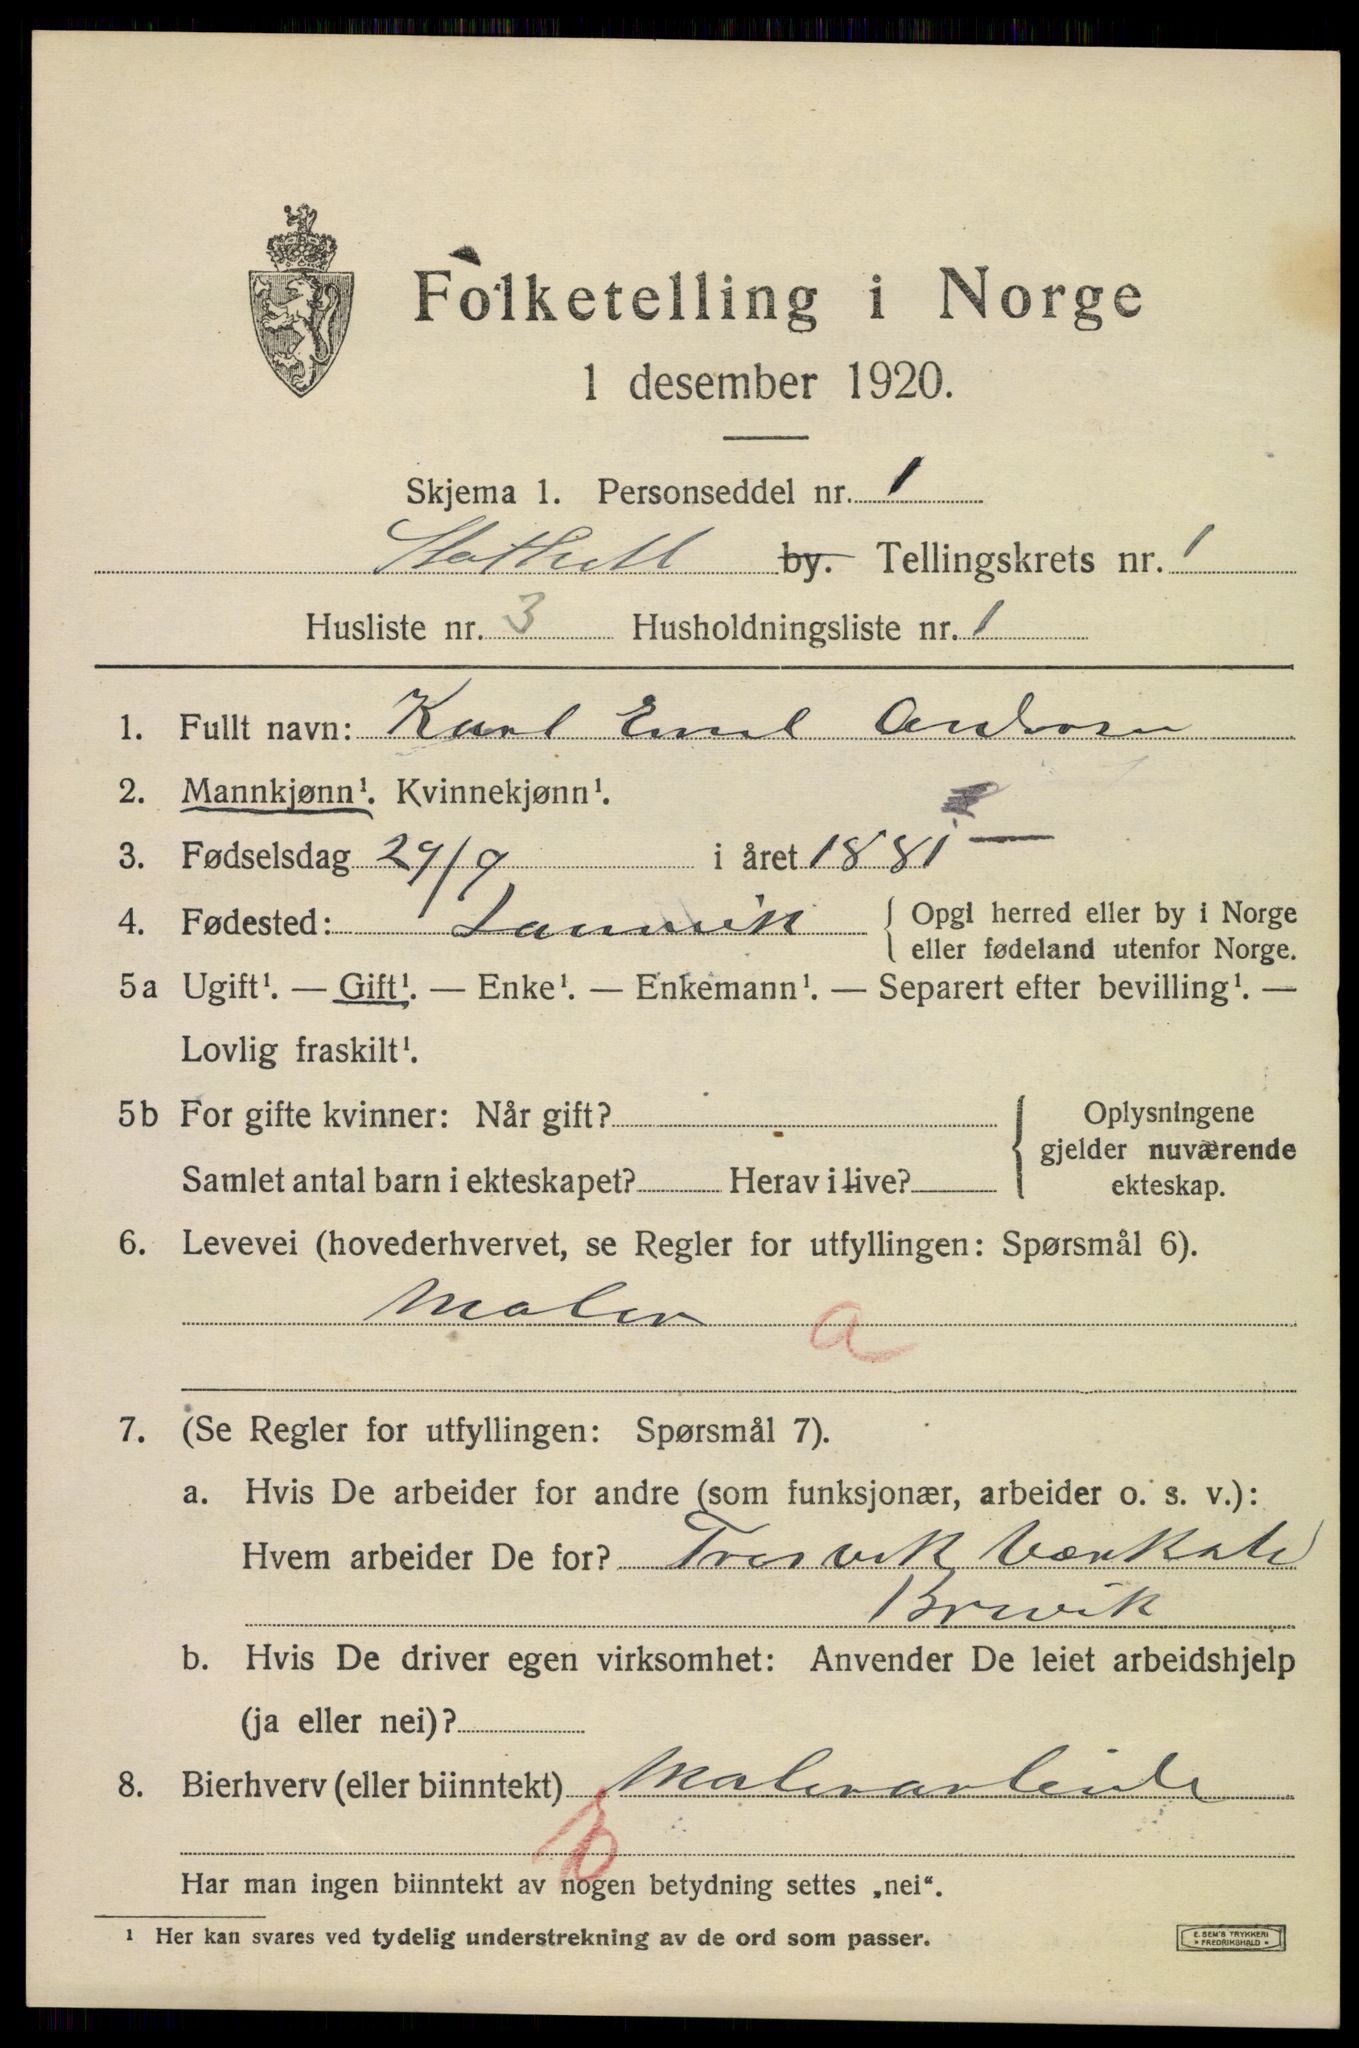 Folketelling i Norge
1 desember 1920.
Skjema 1. Personseddel nr. 1
Stathell by. Tellingskrets nr. 1
Husliste nr. 3 Husholdningsliste nr. 1
1. Fullt navn: Karl Emil
2. Mannkjønn¹. Kvinnekjønn¹.
3. Fødselsdag 29/9 i året 1881
4. Fødested: Laurvik { Opgi herred eller by i Norge
eller fødeland utenfor Norge.
5a Ugift¹. — Gift¹. — Enke¹. — Enkemann¹. — Separert efter bevilling¹. —
Lovlig fraskilt¹.
5b For gifte kvinner: Når gift? { Oplysningene
gjelder nuværende
Samlet antal barn i ekteskapet? Herav i live? ekteskap.
6. Levevei (hovederhvervet, se Regler for utfyllingen: Spørsmål 6).
Maler a
7. (Se Regler for utfyllingen: Spørsmål 7).
a. Hvis De arbeider for andre (som funksjonær, arbeider o. s. v.):
Hvem arbeider De for?
Brevik
b. Hvis De driver egen virksomhet: Anvender De leiet arbeidshjelp
(ja eller nei)?
8. Bierhverv (eller biinntekt) Malerarbeide
Har man ingen biinntekt av nogen betydning settes „nei“.
¹ Her kan svares ved tydelig understrekning av de ord som passer.
E. SEM'S TRYKKERI
FREDRIKSHALD